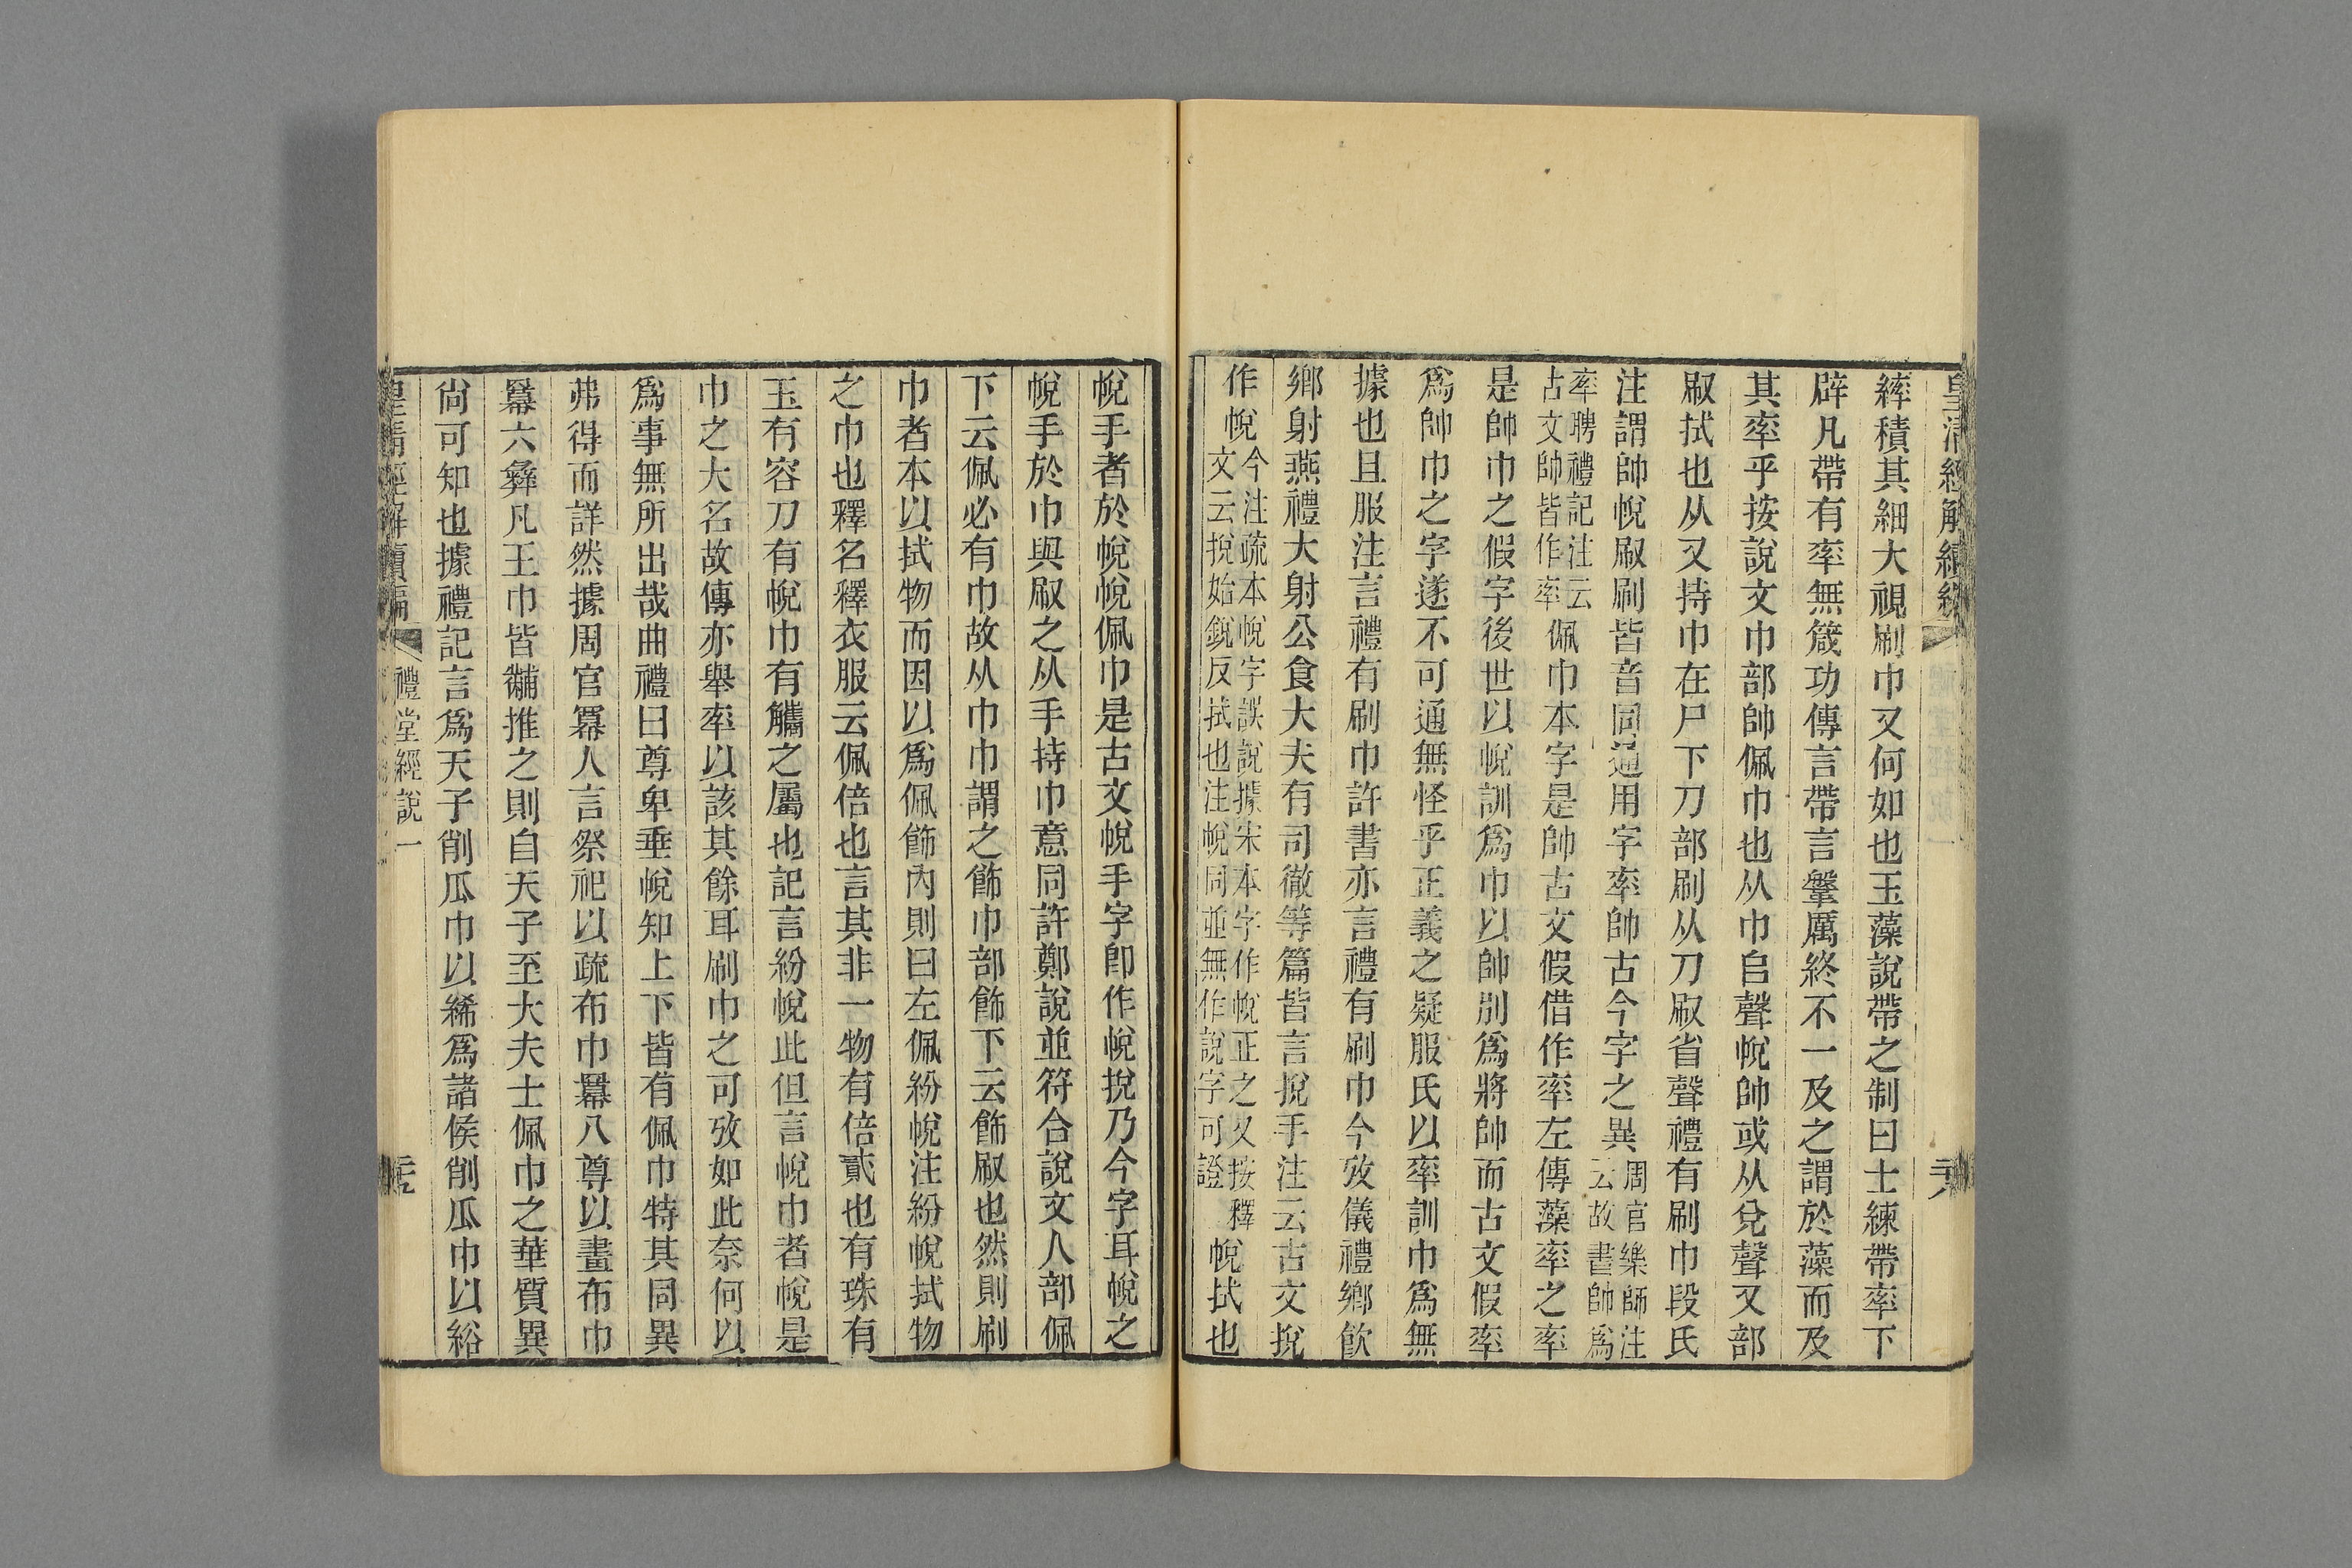 皇清經解續編
繂積其細大視刷巾又何如也玉藻說帶之制曰士練帶率下
辟凡帶有率無箴功傳言帶言鞶厲終不一及之謂於藻而及
其率乎按說文巾部帥佩巾也从巾𠂤聲帨帥或从兌聲又部
㕞拭也从又持巾在尸下刀部刷从刀㕞省聲禮有刷巾段氏
注謂帥帨㕞刷皆音同通用字率帥古今字之異周官樂師注云故書帥爲
率聘禮記注云古文帥皆作率佩巾本字是帥古文假借作率左傳藻率之率
是帥巾之假字後世以帨訓爲巾以帥別爲將帥而古文假率
爲帥巾之字遂不可通無怪乎正義之疑服氏以率訓巾爲無
據也且服注言禮有刷巾許書亦言禮有刷巾今攷儀禮鄉飮
鄉射燕禮大射公食大夫有司徹等篇皆言挩手注云古文挩
作帨今注疏本帨字誤說據宋本字作帨正之又按釋文云挩始銳反拭也注帨同並無作說字可證帨拭也
帨手者於帨帨佩巾是古文帨手字卽作帨挩乃今字耳帨之
帨手於巾與㕞之从手持巾意同許鄭說並符合說文人部佩
下云佩必有巾故从巾巾謂之飾巾部飾下云飾㕞也然則刷
巾者本以拭物而因以爲佩飾內則曰左佩紛帨注紛帨拭物
之巾也釋名釋衣服云佩倍也言其非一物有倍貳也有珠有
玉有容刀有帨巾有觿之屬也記言紛帨此但言帨巾者帨是
巾之大名故傳亦舉率以該其餘耳刷巾之可攷如此奈何以
爲事無所出哉曲禮曰尊卑垂帨知上下皆有佩巾特其同異
弗得而詳然據周官冪人言祭祀以疏布巾冪八尊以畫布巾
冪六彝凡王巾皆黼推之則自天子至大夫士佩巾之華質異
尙可知也據禮記言爲天子削瓜巾以絺爲諸侯削瓜巾以綌
皇清經解續編
禮堂經說一